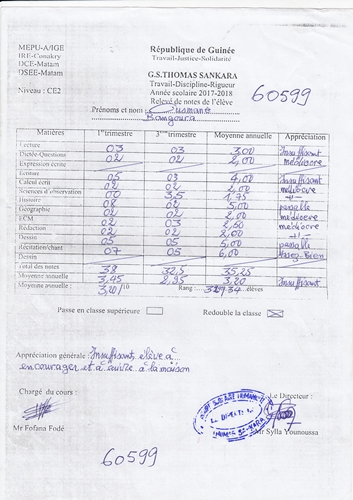 MEPU-A/IGE
République de Guinée
IRE-Conakry
Travail-Justice-Solidarité
DCE-Matam
DSEE-Matam
G.S.THOMAS SANKARA
Travail-Discipline-Rigueur
Niveau : CE2
Année scolaire 2017-2018
Relevé de notes de l'élève
60599
Prénoms et nom : Ousmane
Bangoura
Matières 1er trimestre 3ème trimestre Moyenne annuelle Appréciation
Lecture 03 03 3,00 Insuffisant
Dictée-Questions 02 02 2,00 médiocre
Expression écrite
Ecriture
Calcul écrit 05 03 4,00 Insuffisant
Sciences d'observation 02 02 2,00 médiocre
Histoire 00 3,5 1,75 -//-
Géographie 08 02 5,00 passable
ECM 02 02 2,00 médiocre
Rédaction 02 03 2,50 médiocre
Dessin 02 02 2,00 -//-
Récitation/chant 05 05 5,00 passable
Dessin 07 05 6,00 Assez-Bien
Total des notes 38 32,5 35,25
Moyenne annuelle 3,45 2,95 3,20 Insuffisant
Moyenne annuelle : 3,20/10 Rang : 32e/34 élèves
Passe en classe supérieure
Redouble la classe
Appréciation générale : Insuffisant, élève à
encourager et à suivre à la maison
Chargé du cours :
Le Directeur :
Mr Fofana Fodé
Mr Sylla Younoussa
60599